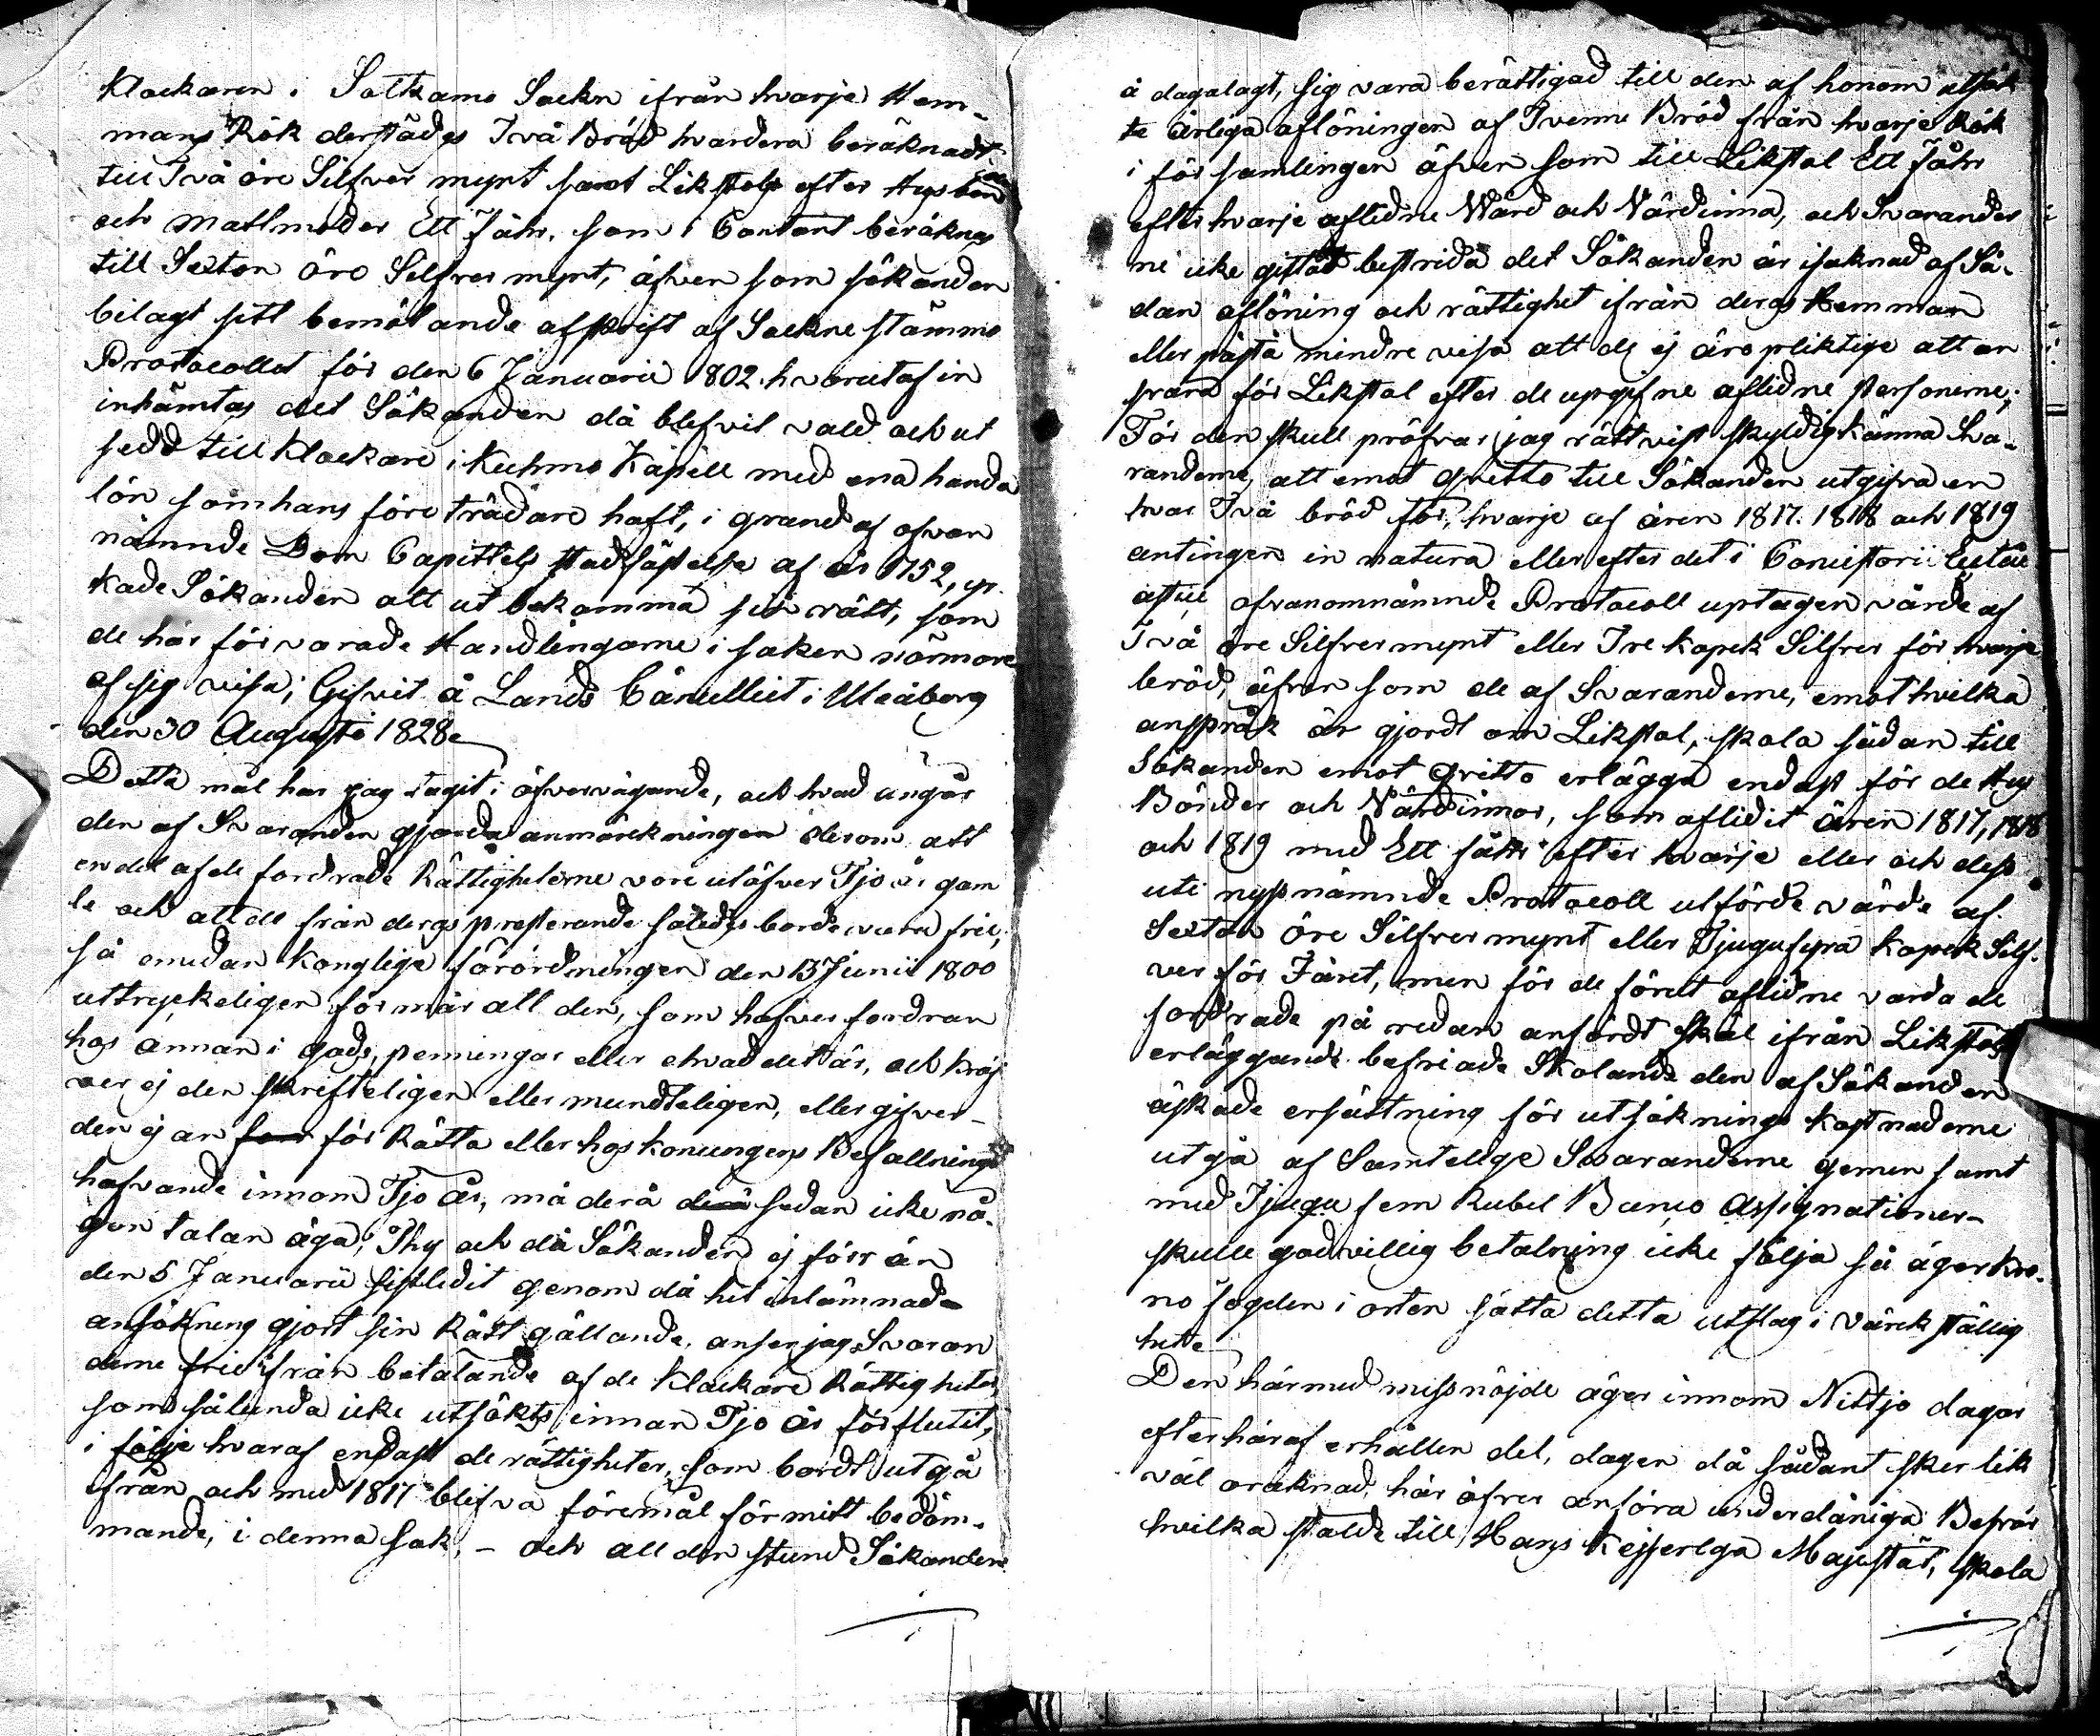 Klockaren i Sotkamo Sockn ifrån hvarje Hem-
mans Rök derstädes Två Bröd hvardera beräknadt
till Två öre Silfver mynt samt Likstols efter Husbonde
och matmoder Ett Fåhr, som i Contant beräknas
till Sexton öre Silfver mynt, äfven som sökanden
bilagt sitt bemötande afskrift af Sockne stämmo
Protocollet för den 6 Januarii 1802. hvarutaf in
inhämtas det Sökanden då blefvit vald och ut
sedd till Klockare i Kuhmo Kapell med ena handa
lön som hans företrädare haft, i grund af ofvan
nämnde Dom Capittels stadfästelse af år 1752, yr-
kade Sökanden att utbekomma sin rätt, som
de här förvarade Handlingarne i saken närmare
af sig visa; Gifvit å Lands Cancelliet i Uleåborg
den 30 Augusti 1828.
Detta mål har jag tagit i öfvervägande, och hvad angår
den af Svaranden gjorda anmärckningen derom att
en del af de fordrade Rättigheterne vore utöfver Tjo år gam
le och att de från deras presterande således borde vara frie,
så emedan Konglige förordningen den 13 Junii 1800
uttryckeligen förmår att den, som hafver fordran
hos annan i gods, penningar eller ehvad det är, och kräf
ver ej den skrifteligen eller mundteligen, eller gifver
den ej an för Rätta eller hos konungens Befallnings
hafvande innom Tjo år, må derå sedan icke nå-
gon talan äga; Thy och då Sökanden ej förr än
den 5 Januarii sistledit genom då hit inlämnade
ansökning gjort sin Rätt gällande, anser jag Svaran
derne frie ifrån betalande af de Klockare Rättigheter,
som sålunda icke utsökts innan Tjo år förflutit,
i följe hvaraf endast de rättigheter, som bordt utgå
ifrån och med 1817 blifva föremål för mitt bedöm-
mande, i denna sak, – och all den stund Sökanden
å dagalagt, sig vara berättigad till den af honom utsök
te årliga aflöningen af Tvenne Bröd från hvarje Rök
i församlingen äfven som till Likstol Ett Fåhr
efter hvarje aflidne Wärd och Värdinna, och Svarander
ne icke gittat bestrida det Sökanden är isaknad af Så-
dan aflöning och rättighet ifrån deras Hemman
eller påstå mindre visa att de ej äro pliktige att an
svara för Likstol efter de uppgifne aflidne personerne;
För den skull pröfvar jag rättvist skyldig känna Sva-
randerne, att emot qvitto till Sökanden utgifva en
hvar Två bröd för hvarje af åren 1817. 1818 och 1819
antingen in natura eller efter det i Consistorii
ofvanomnämnde Protocoll uptagen värde af
Två öre Silfvermynt eller Tre kopek Silfver för hvarje
bröd, äfven som de af Svaranderne, emot hvilka
anspråk är gjordt om Likstol, skola sådan till
Sökanden emot qvitto erlägga endast för de Hus
Bönder och Värdinnor, som aflidit åren 1817, 1818
och 1819 med Ett fåhr efter hvarje eller och dess
uti nyssnämnde Protocoll utförde värde af
Sexton öre Silfver mynt eller Tjugufyra kopek Silf-
ver för Fåret, men för de förut aflidne varda de
fordrade på redan anfördt skäl ifrån Likstols
erläggande befriade Skolande den af Sökanden
äskade ersättning för utsöknings kostnaderne
utgå af Samtelige Svaranderne gemensamt
med Tjugu fem Rubel Banco Assignationer
skulle godvillig betalning icke följa så äger kro-
no fogden i orten sätta detta utslag i värck ställig
hette
Den härmed missnöjde äger innom Nittjo dagar
efter häraf erhållen del, dagen då sådant sker lik
väl oräknad, här öfver anföra underdåniga Besvär
hvilka stälde till Hans Kejserlga Majestät, skola